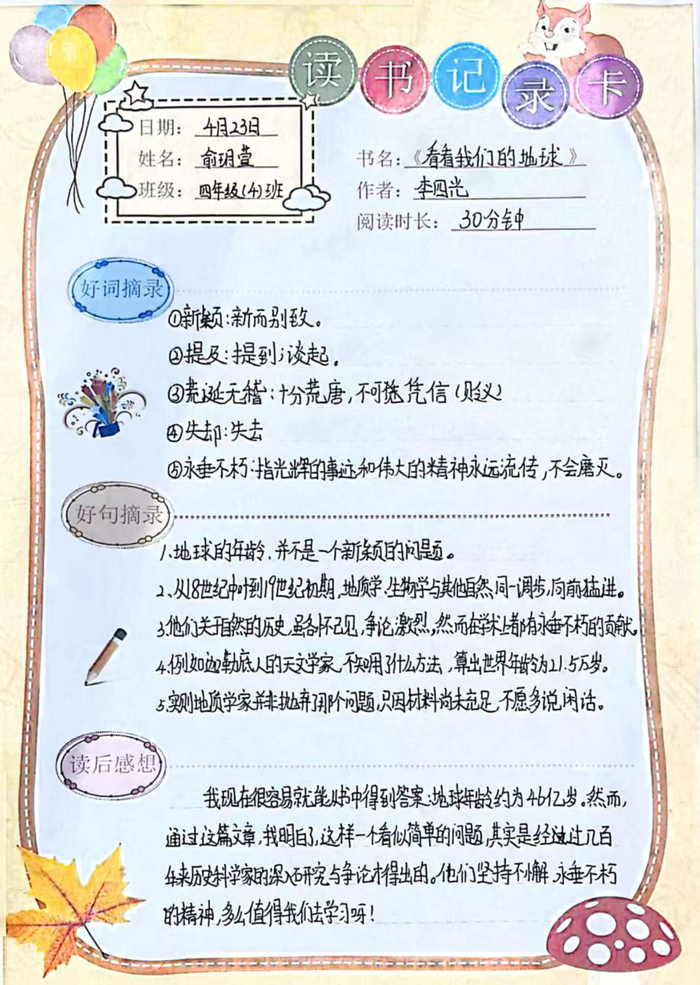 读书记录卡
日期: 4月23日
姓名: 俞玥萱
班级: 四年级(4)班
书名:《看看我们的地球》
作者: 李四光
阅读时长: 30分钟
好词摘录
①新颖:新而别致。
②提及:提到;谈起。
③荒诞无稽:十分荒唐,不可凭信(贬义)
④失却:失去
⑤永垂不朽:指光辉的事迹和伟大的精神永远流传,不会磨灭。
好句摘录
1.地球的年龄,并不是一个新颖的问题。
2.从18世纪中叶到19世纪初期,地质学、生物学与其他自然同一调步,向前猛进。
3.他们关于自然的历史,虽各怀己见,争论激烈,然而在学术上都有永垂不朽的贡献。
4.例如迦勒底人的天文学家,不知用了什么方法,算出世界年龄为21.5万岁。
5.实则地质学家并非抛弃了那个问题,只因材料尚未充足,不愿多说闲话。
读后感想
我现在很容易就能从书中得到答案:地球年龄约为46亿岁。然而,
通过这篇文章,我明白了,这样一个看似简单的问题,其实是经过几百
年来历史科学家的深入研究与争论才得出的。他们坚持不懈、永垂不朽
的精神,多么值得我们去学习呀!